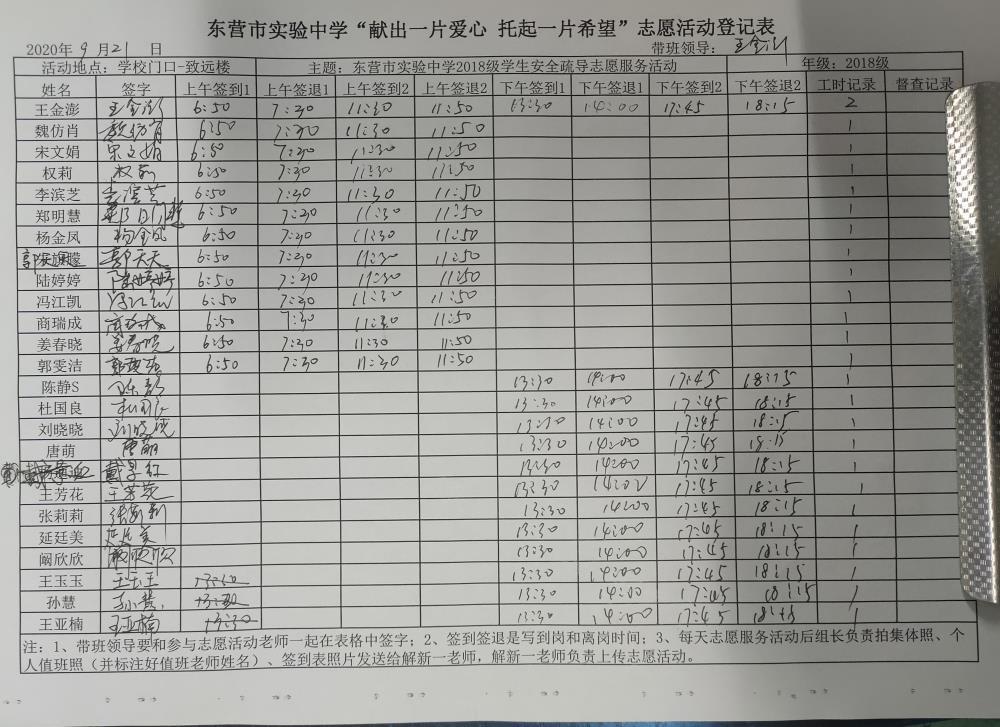 东营市实验中学“献出一片爱心 托起一片希望”志愿活动登记表
2020年 9 月 21 日 带班领导：王金澎
活动地点：学校门口-致远楼 主题：东营市实验中学2018级学生安全疏导志愿服务活动 年级：2018级
姓名 签字 上午签到1 上午签退1 上午签到2 上午签退2 下午签到1 下午签退1 下午签到2 下午签退2 工时记录 督查记录
王金澎 王金澎 6:50 7:30 11:30 11:50 13:30 14:00 17:45 18:15 2
魏仿肖 魏仿肖 6:50 7:30 11:30 11:50 1
宋文娟 宋文娟 6:50 7:30 11:30 11:50 1
权莉 权莉 6:50 7:30 11:30 11:50 1
李滨芝 李滨芝 6:50 7:30 11:30 11:50 1
郑明慧 郑明慧 6:50 7:30 11:30 11:50 1
杨金凤 杨金凤 6:50 7:30 11:30 11:50 1
郭天天 6:50 7:30 11:30 11:50 1
陆婷婷 陆婷婷 6:50 7:30 11:30 11:50 1
冯江凯 冯江凯 6:50 7:30 11:30 11:50 1
商瑞成 商瑞成 6:50 7:30 11:30 11:50 1
姜春晓 姜春晓 6:50 7:30 11:30 11:50 1
郭雯洁 郭雯洁 6:50 7:30 11:30 11:50 1
陈静S 陈静 13:30 14:00 17:45 18:15 1
杜国良 杜国良 13:30 14:00 17:45 18:15 1
刘晓晓 刘晓晓 13:30 14:00 17:45 18:15 1
唐萌 唐萌 13:30 14:00 17:45 18:15 1
戴 13:30 14:00 17:45 18:15 1
王芳花 王芳花 13:30 14:00 17:45 18:15 1
张莉莉 张莉莉 13:30 14:00 17:45 18:15 1
延廷美 延廷美 13:30 14:00 17:45 18:15 1
阚欣欣 阚欣欣 13:30 14:00 17:45 18:15 1
王玉玉 王玉玉 13:30 13:30 14:00 17:45 18:15 1
孙慧 孙慧 13:30 13:30 14:00 17:45 18:15 1
王亚楠 王亚楠 13:30 13:30 14:00 17:45 18:15 1
注：1、带班领导要和参与志愿活动老师一起在表格中签字；2、签到签退是写到岗和离岗时间；3、每天志愿服务活动后组长负责拍集体照、个
人值班照（并标注好值班老师姓名）、签到表照片发送给解新一老师，解新一老师负责上传志愿活动。